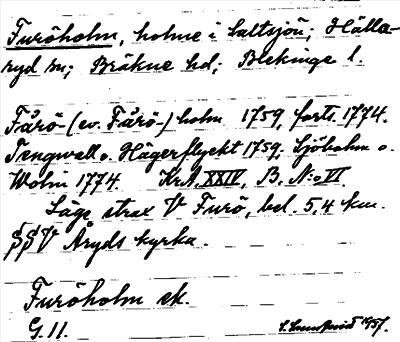 Furöholm, holme i Saltsjön; Hälla-
ryd sn; Bräkne hd; Blekinge l.
Fårö- (ev. Färö-) holm 1759, forts. 1774.
Tengwall o. Hägerflyckt 1759. Sjöbohm o.
Wolin 1774. KrA, XXIV, B, N:o VI.
Läge strax V Furö, bel. 5,4 km.
SSV Åryds kyrka.
Furöholm ek.
G. 11. 1957.